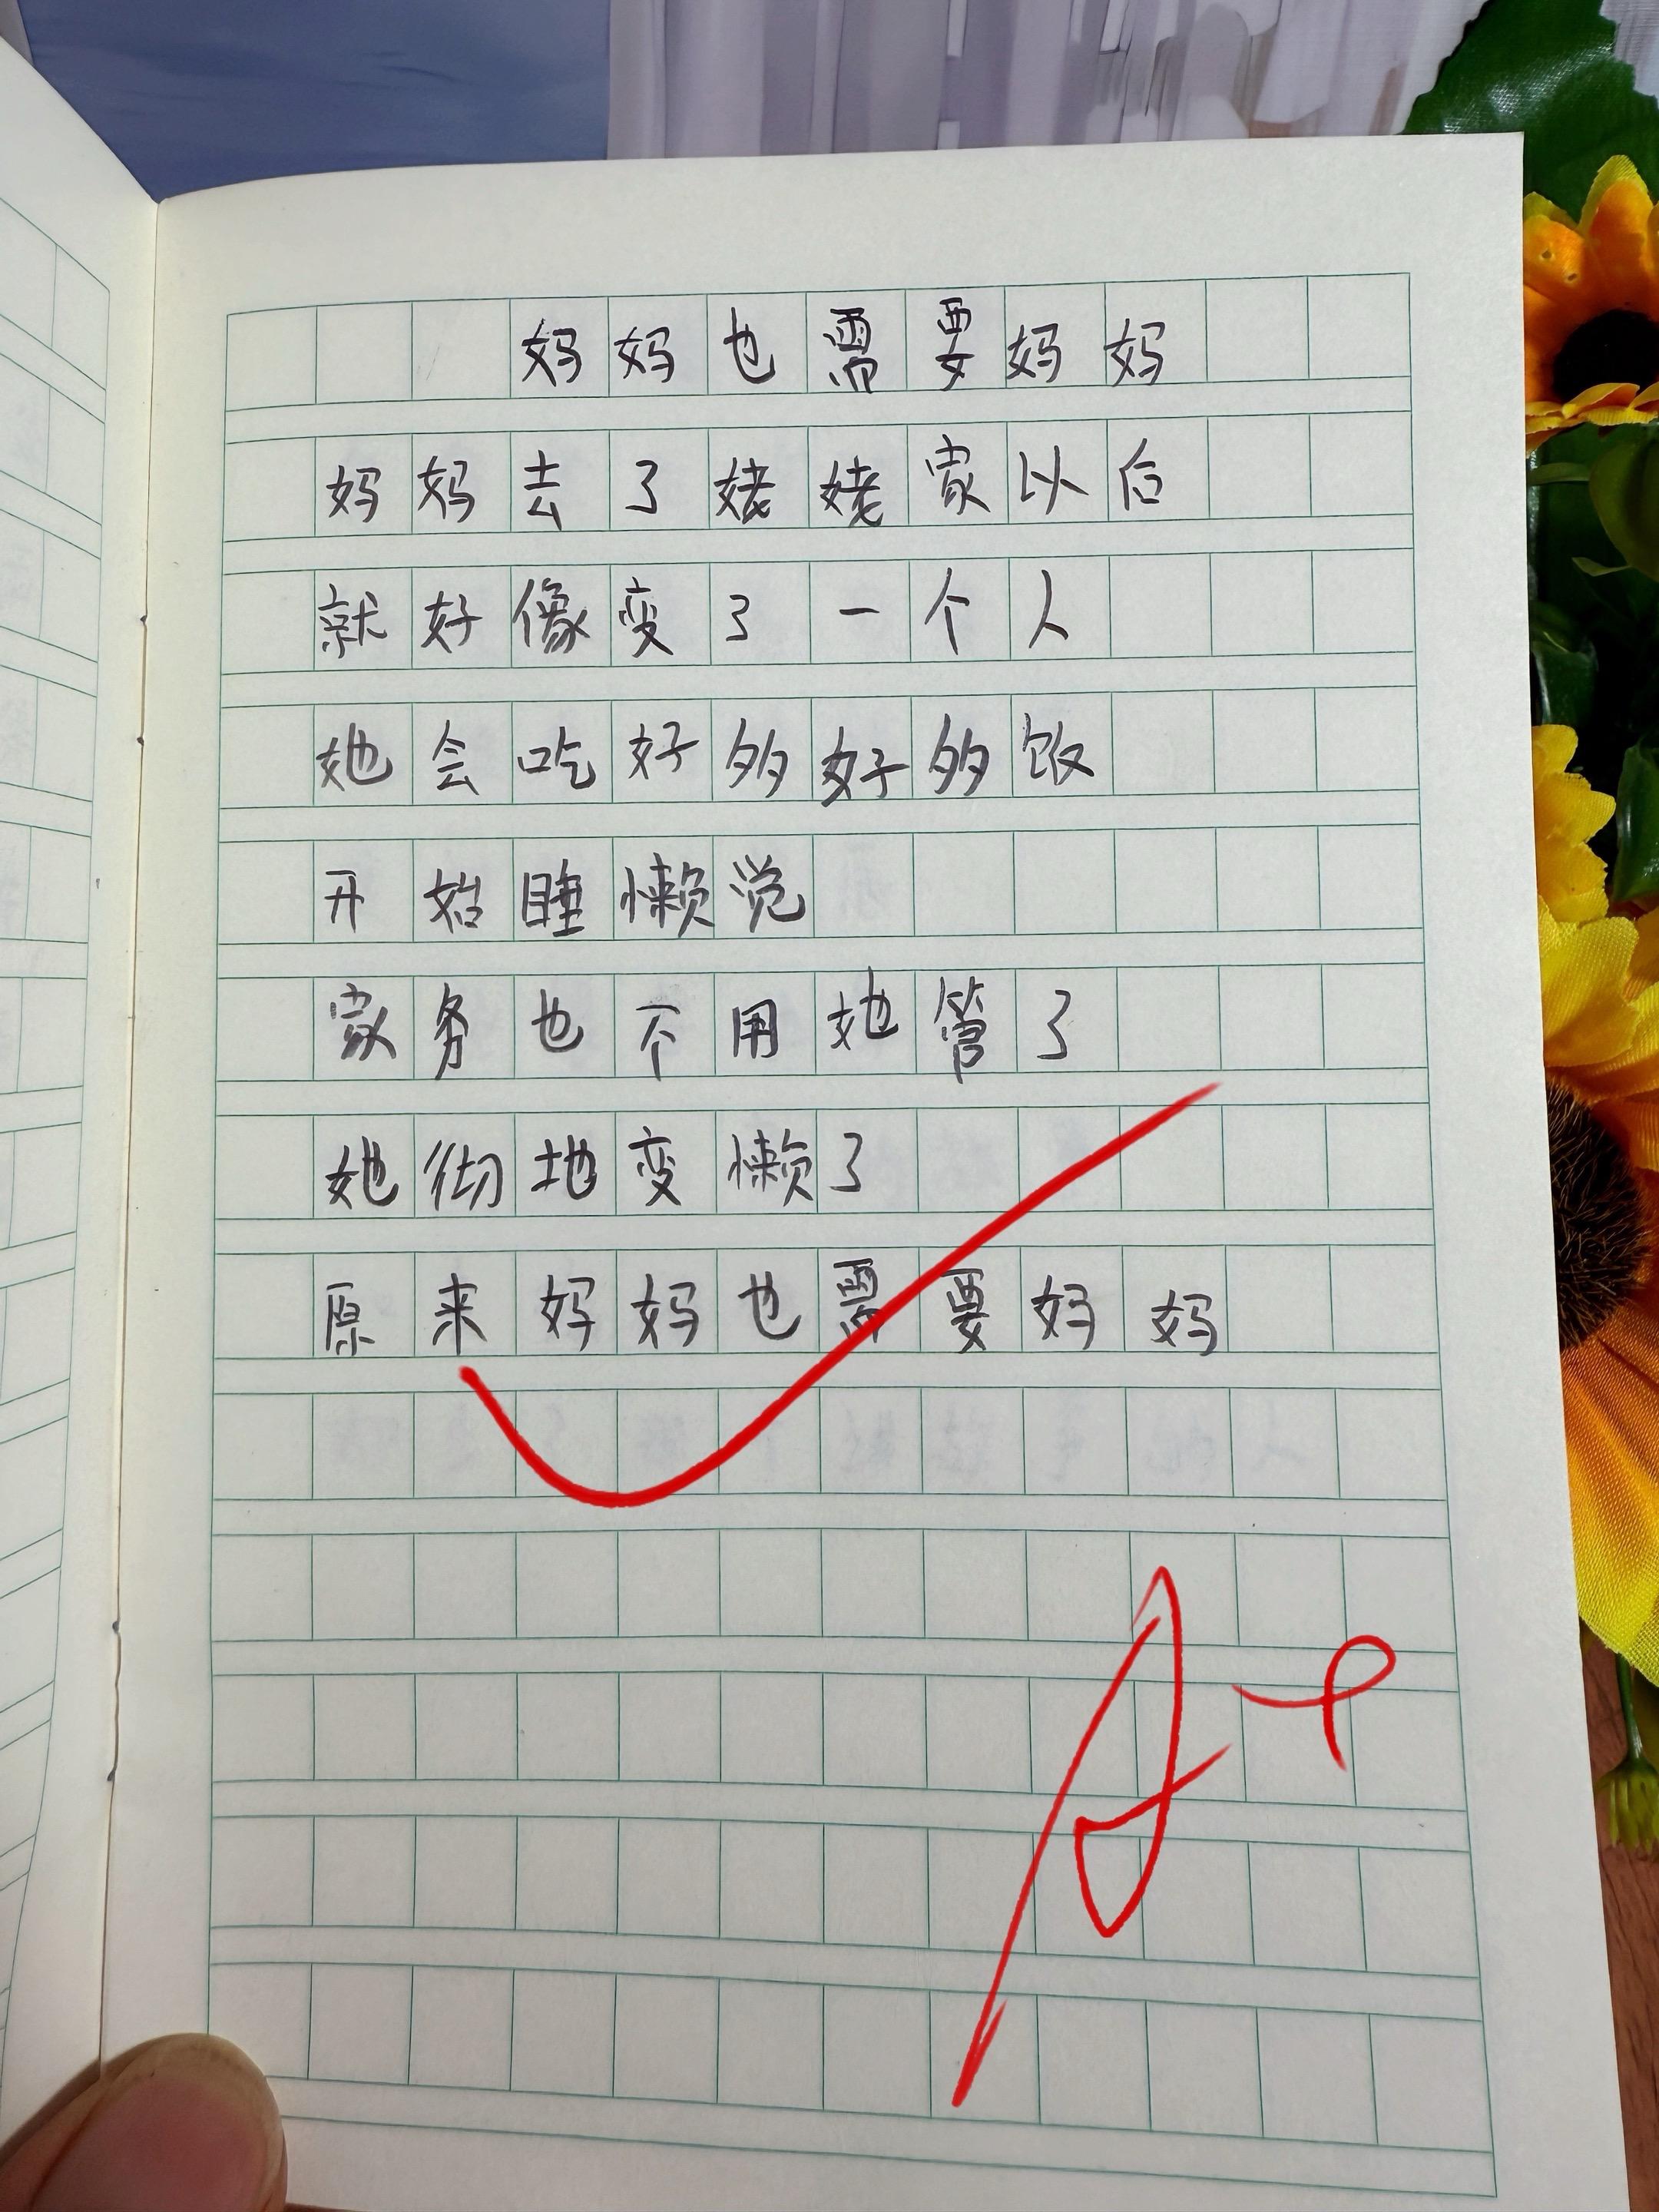 妈妈也需要妈妈
妈妈去了姥姥家以后
就好像变了一个人
她会吃好多好多饭
开始睡懒觉
家务也不用她管了
她彻地变懒了
原来妈妈也需要妈妈
A+